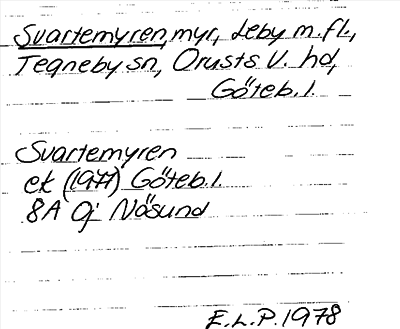 Svartemyren, myr, Leby m.fl.,
Tegneby sn, Orusts V. hd,
Göteb. l.
Svartemyren
ek (1977) Göteb. l.
8A 0j Näsund
E.L.P. 1978